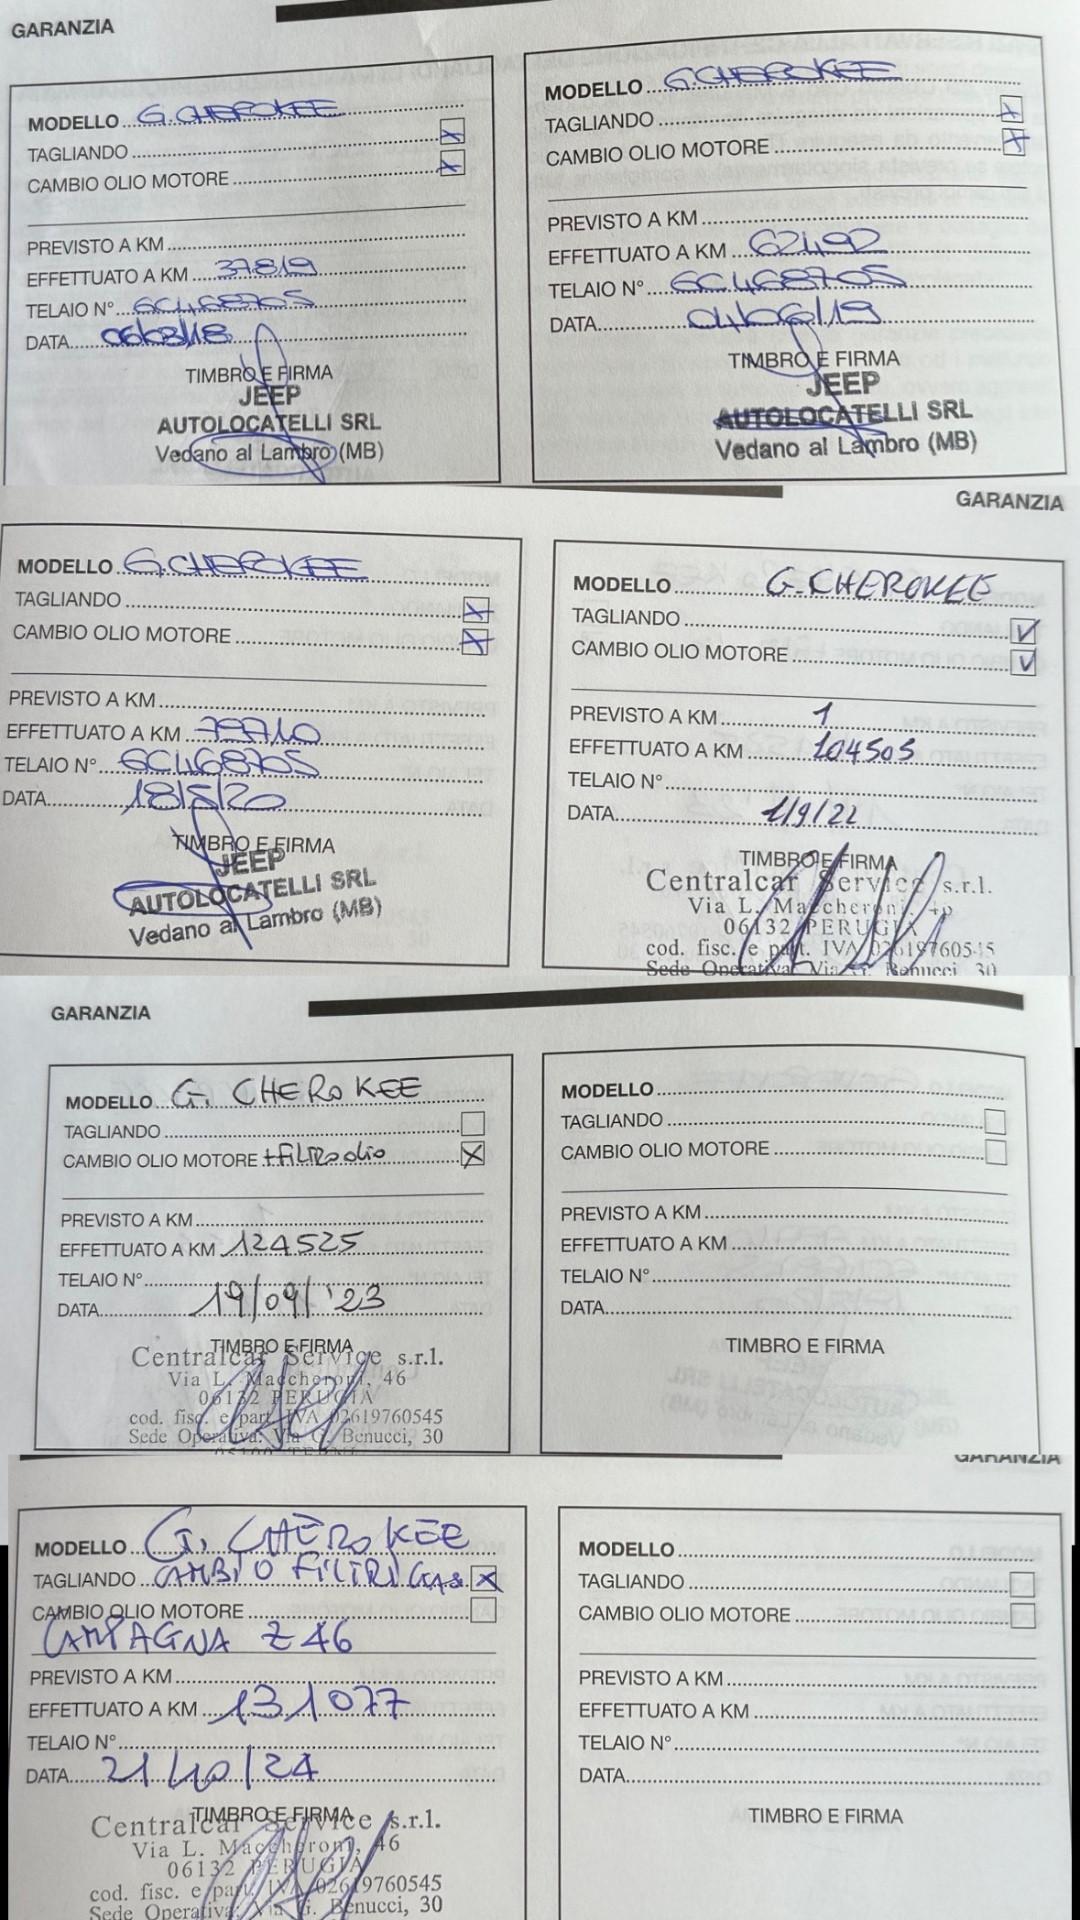 GARANZIA
MODELLO G.CHEROKEE
TAGLIANDO X
CAMBIO OLIO MOTORE X
PREVISTO A KM
EFFETTUATO A KM 37819
TELAIO N° GC468705
DATA 06/03/18
TIMBRO E FIRMA
JEEP
AUTOLOCATELLI SRL
Vedano al Lambro (MB)
MODELLO G.CHEROKEE
TAGLIANDO X
CAMBIO OLIO MOTORE X
PREVISTO A KM
EFFETTUATO A KM 62492
TELAIO N° GC468705
DATA 04/06/19
TIMBRO E FIRMA
JEEP
AUTOLOCATELLI SRL
Vedano al Lambro (MB)
GARANZIA
MODELLO G.CHEROKEE
TAGLIANDO X
CAMBIO OLIO MOTORE X
PREVISTO A KM
EFFETTUATO A KM 79710
TELAIO N° GC468705
DATA 18/5/20
TIMBRO E FIRMA
JEEP
AUTOLOCATELLI SRL
Vedano al Lambro (MB)
MODELLO G.CHEROKEE
TAGLIANDO ✓
CAMBIO OLIO MOTORE ✓
PREVISTO A KM 1
EFFETTUATO A KM 104505
TELAIO N°
DATA 1/9/22
TIMBRO E FIRMA
Centralcar Service s.r.l.
Via L. Maccheroni, 46
06132 PERUGIA
cod. fisc. e part. IVA 02619760545
Sede Operativa: Via G. Benucci, 30
GARANZIA
MODELLO G. CHEROKEE
TAGLIANDO
CAMBIO OLIO MOTORE +FILTRO olio X
PREVISTO A KM
EFFETTUATO A KM 124525
TELAIO N°
DATA 19/09/'23
TIMBRO E FIRMA
Centralcar Service s.r.l.
Via L. Maccheroni, 46
06132 PERUGIA
cod. fisc. e part. IVA 02619760545
Sede Operativa: Via G. Benucci, 30
MODELLO
TAGLIANDO
CAMBIO OLIO MOTORE
PREVISTO A KM
EFFETTUATO A KM
TELAIO N°
DATA
TIMBRO E FIRMA
GARANZIA
MODELLO G. CHEROKEE
TAGLIANDO CAMBIO FILTRI GAS X
CAMBIO OLIO MOTORE
CAMPAGNA Z46
PREVISTO A KM
EFFETTUATO A KM 131077
TELAIO N°
DATA 21/10/24
TIMBRO E FIRMA
Centralcar Service s.r.l.
Via L. Maccheroni, 46
06132 PERUGIA
cod. fisc. e part. IVA 02619760545
Sede Operativa: Via G. Benucci, 30
MODELLO
TAGLIANDO
CAMBIO OLIO MOTORE
PREVISTO A KM
EFFETTUATO A KM
TELAIO N°
DATA
TIMBRO E FIRMA